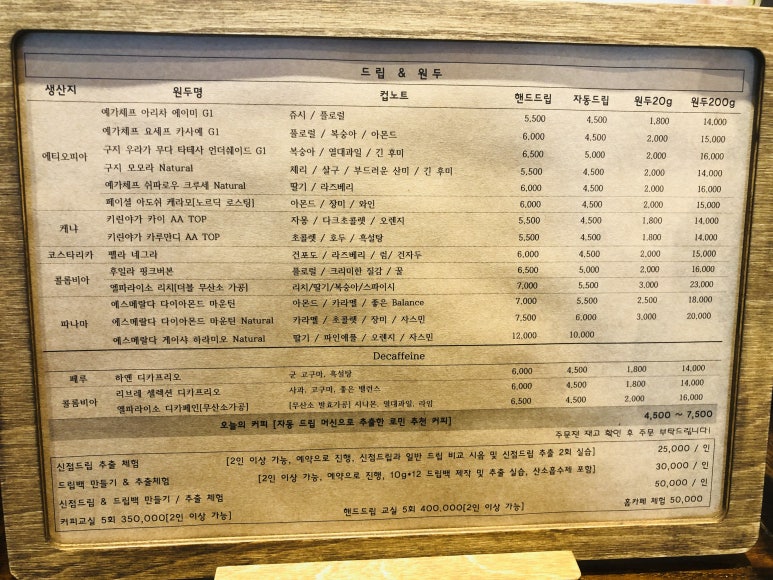 드립 & 원두
생산지 원두명 컵노트 핸드드립 자동드립 원두20g 원두200g
예가체프 아리차 에이미 G1 쥬시 / 플로럴 5,500 4,500 1,800 14,000
예가체프 요세프 카사예 G1 플로럴 / 복숭아 / 아몬드 6,000 4,500 2,000 15,000
에티오피아 구지 우라가 무다 타테사 언더쉐이드 G1 복숭아 / 열대과일 / 긴 후미 6,500 5,000 2,000 16,000
구지 모모라 Natural 체리 / 살구 / 부드러운 산미 / 긴 후미 5,500 4,500 2,000 14,000
예가체프 쉬파로우 크루세 Natural 딸기 / 라즈베리 6,000 4,500 2,000 16,000
페이셜 아도쉬 케라모[노르딕 로스팅] 아몬드 / 장미 / 와인 6,000 4,500 2,000 15,000
케냐 키린야가 카이 AA TOP 자몽 / 다크초콜렛 / 오렌지 5,500 4,500 1,800 14,000
키린야가 카루만디 AA TOP 초콜렛 / 호두 / 흑설탕 5,500 4,500 1,800 14,000
코스타리카 뻴라 네그라 건포도 / 라즈베리 / 럼/ 건자두 6,000 4,500 2,000 15,000
콜롬비아 후일라 핑크버본 플로럴 / 크리미한 질감 / 꿀 6,500 5,000 2,000 16,000
엘파라이소 리치[더블 무산소 가공] 리치/딸기/복숭아/스파이시 7,000 5,500 3,000 23,000
파나마 에스메랄다 다이아몬드 마운틴 아몬드 / 카라멜 / 좋은 Balance 7,000 5,500 2,500 18,000
에스메랄다 다이아몬드 마운틴 Natural 카라멜 / 초콜렛 / 장미 / 자스민 7,500 6,000 3,000 20,000
에스메랄다 게이샤 하라미오 Natural 딸기 / 파인애플 / 오렌지 / 자스민 12,000 10,000
Decaffeine
페루 하엔 디카프리오 군 고구마, 흑설탕 6,000 4,500 1,800 14,000
콜롬비아 리브레 셀렉션 디카프리오 사과, 고구마, 좋은 밸런스 6,000 4,500 1,800 14,000
엘파라이소 디카페인[무산소가공] [무산소 발효가공] 시나몬, 열대과일, 라임 6,500 4,500 2,000 16,000
오늘의 커피 [자동 드립 머신으로 추출한 로민 추천 커피] 4,500 ~ 7,500
주문전 재고 확인 후 주문 부탁드립니다!
신점드립 추출 체험 [2인 이상 가능, 예약으로 진행, 신점드립과 일반 드립 비교 시음 및 신점드립 추출 2회 실습] 25,000 / 인
드립백 만들기 & 추출체험 [2인 이상 가능, 예약으로 진행, 10g*12 드립백 제작 및 추출 실습, 산소흡수제 포함] 30,000 / 인
신점드립 & 드립백 만들기 / 추출 체험 50,000 / 인
커피교실 5회 350,000[2인 이상 가능] 핸드드립 교실 5회 400,000[2인 이상 가능] 홈카페 체험 50,000